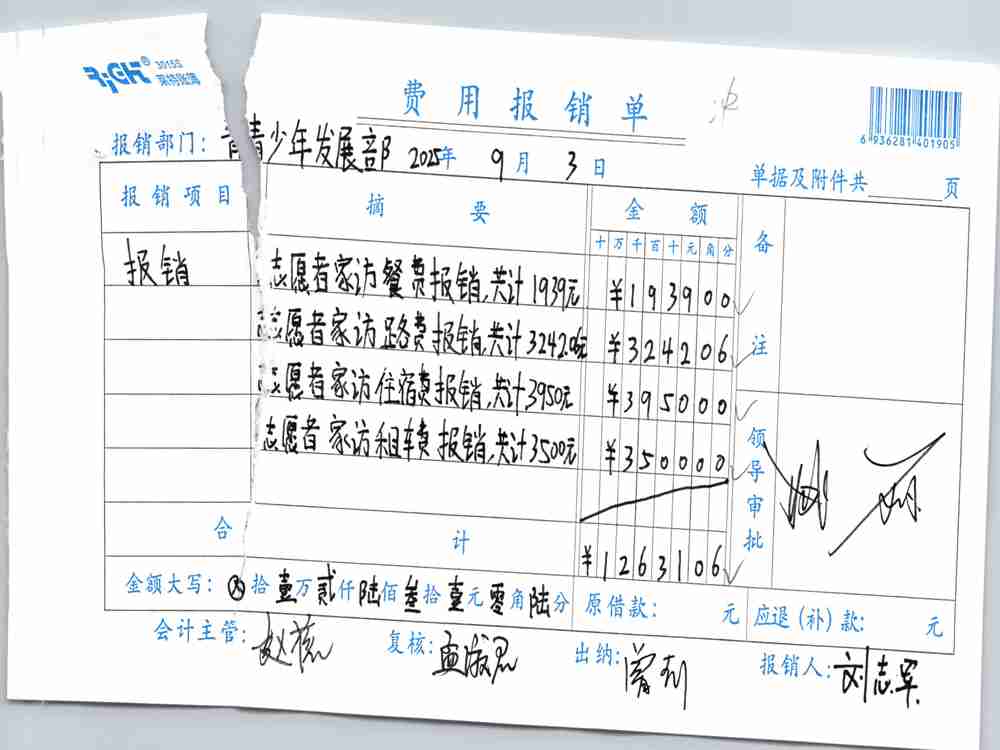 3015S
莱特账簿
费用报销单
6 936281 401905
报销部门：青少年发展部 2025年 9月 3日
单据及附件共 页
报销项目 摘要 金额 备注
十万千百十元角分
报销 志愿者家访餐费报销,共计1939元 ¥193900
志愿者家访路费报销,共计3242.06元 ¥324206
志愿者家访住宿费报销,共计3950元 ¥395000
志愿者家访租车费报销,共计3500元 ¥350000
领导审批
合计 ¥1263106
金额大写：⊗拾壹万贰仟陆佰叁拾壹元零角陆分 原借款： 元 应退（补）款: 元
会计主管: 复核: 出纳: 报销人: 刘志军